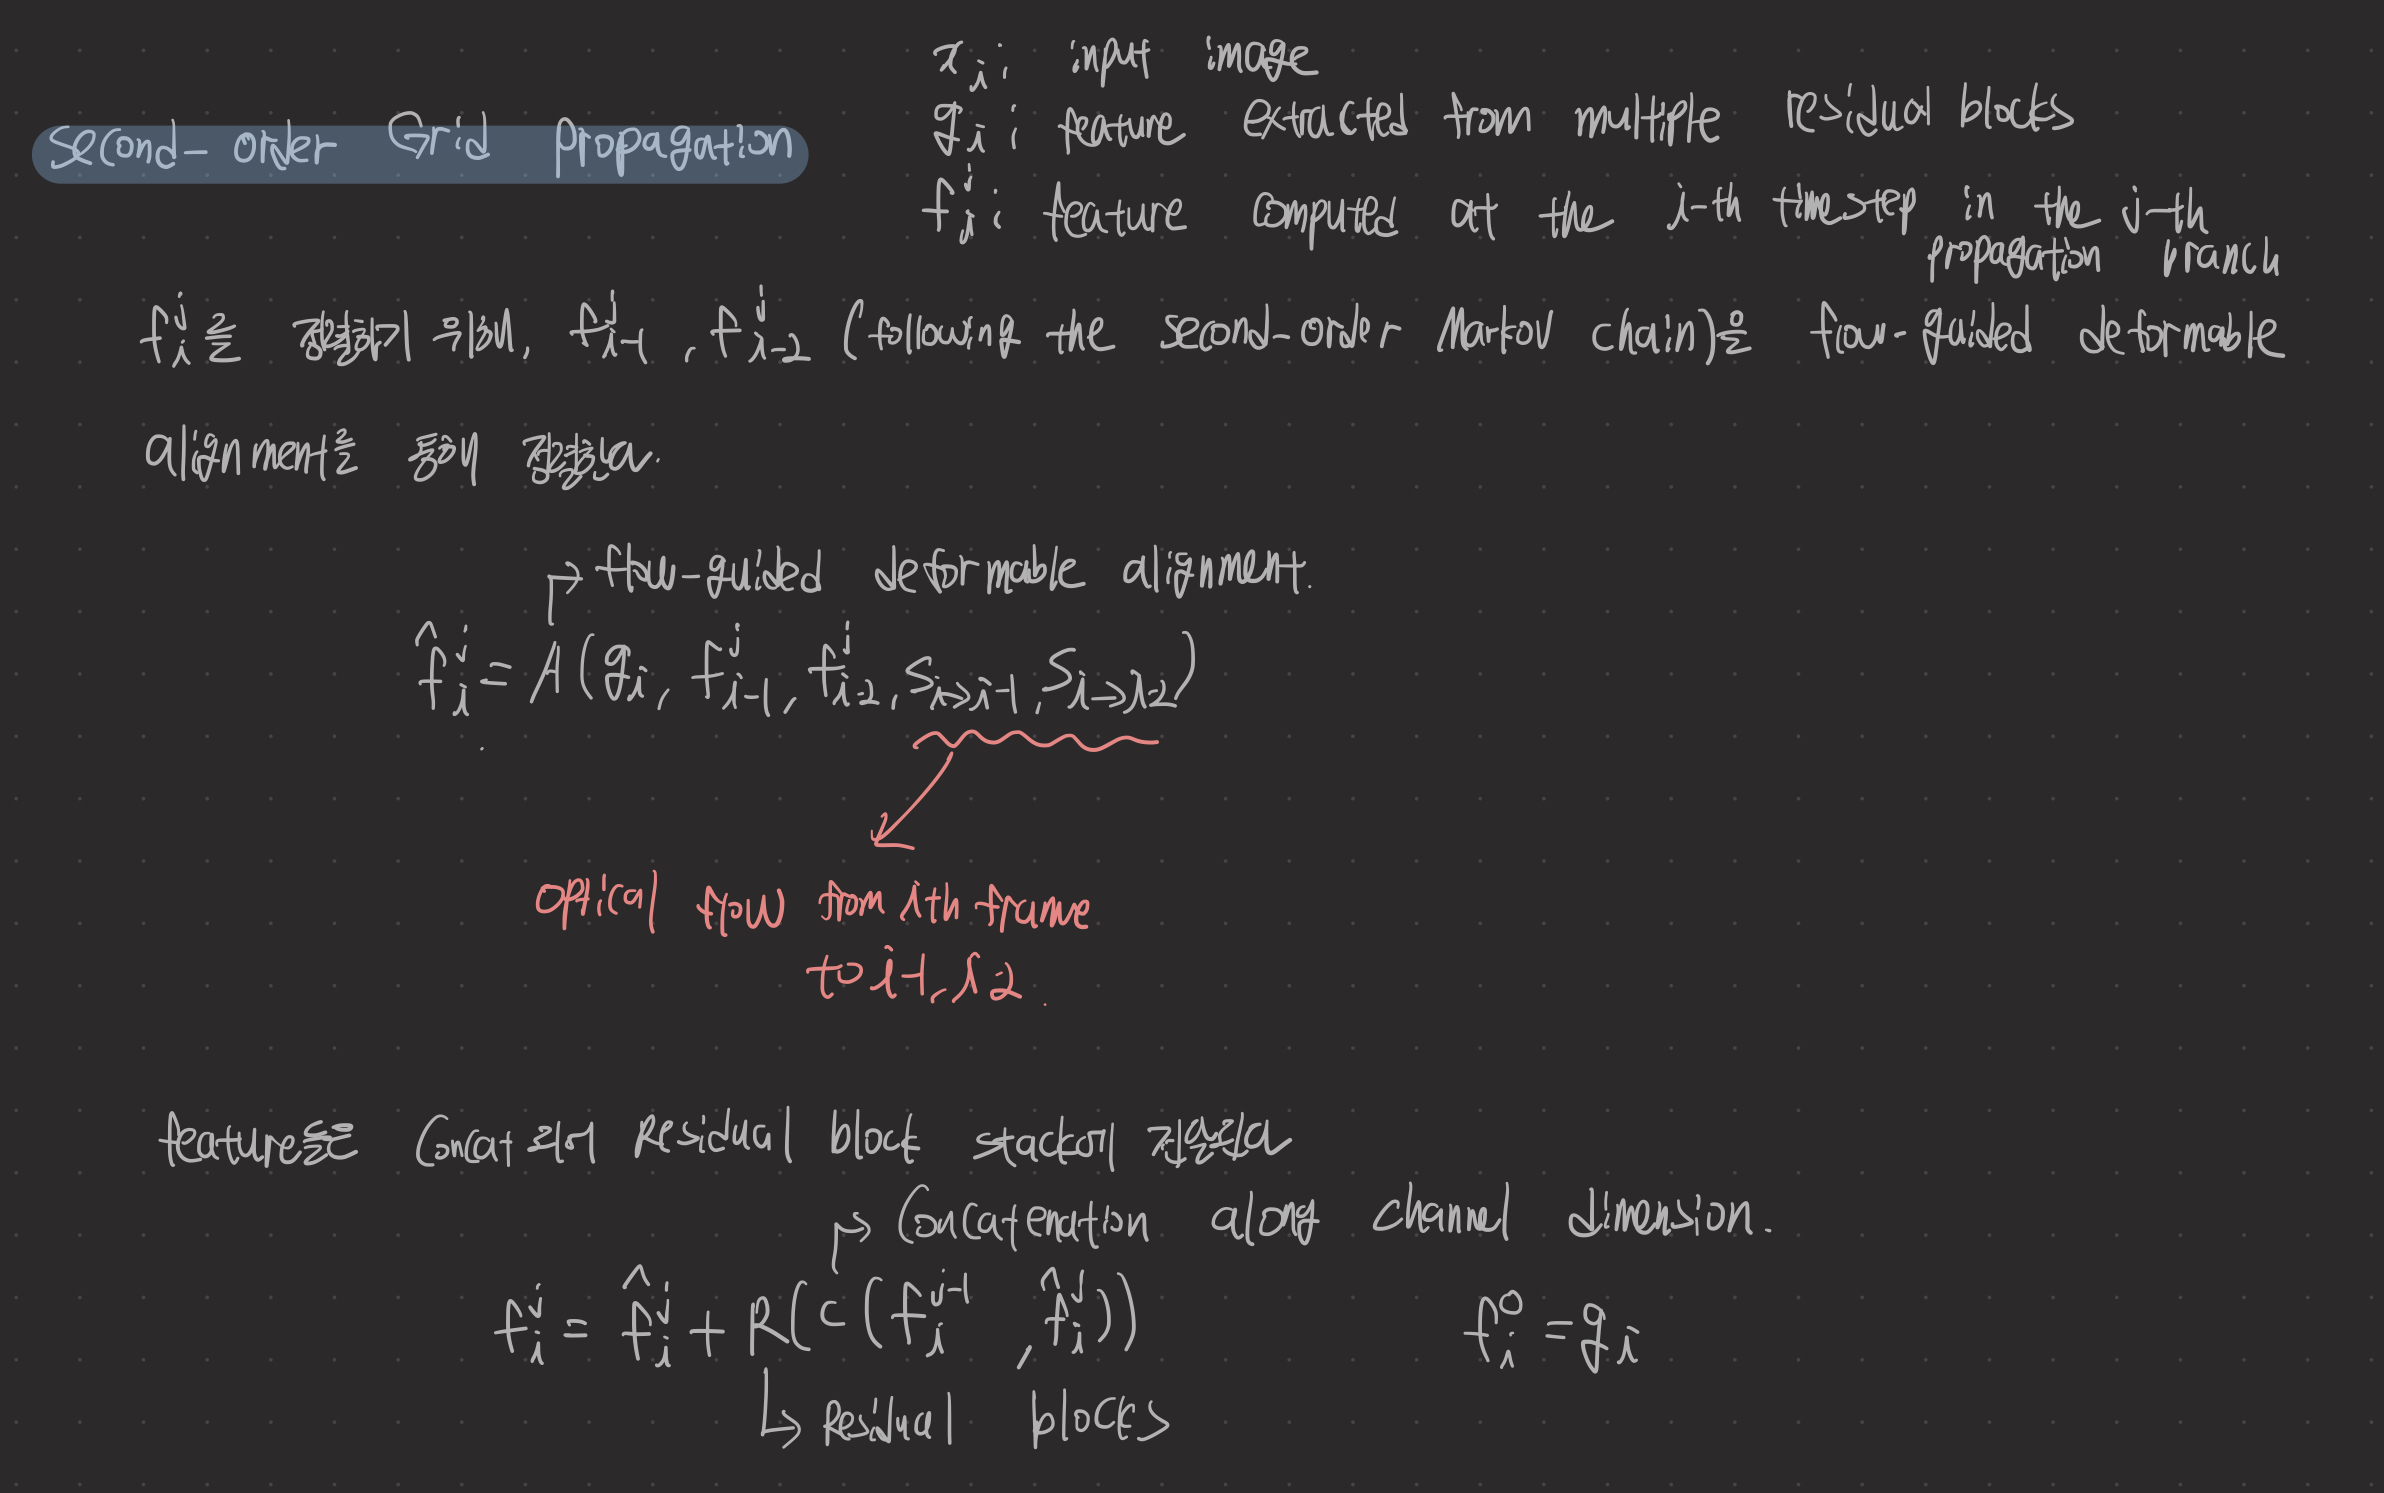 x_i : input image
Second-order Grid propagation
g_i : feature extracted from multiple residual blocks
f_i^j : feature computed at the i-th timestep in the j-th
propagation branch
f_i^j를 계산하기 위해, f_{i-1}^j, f_{i-2}^j (following the second-order Markov chain)은 flow-guided deformable
alignment를 통해
→ flow-guided deformable alignment.
\hat{f}_i^j = A(g_i, f_{i-1}^j, f_{i-2}^j, s_{i→i-1}, s_{i→i-2})
optical flow from ith frame
to i-1, i-2.
feature들은 Concat 되어 Residual block stack에 전달된다
→ Concatenation along channel dimension.
f_i^j = \hat{f}_i^j + R(C(f_i^{j-1}, \hat{f}_i^j)) f_i^0 = g_i
↳ Residual blocks